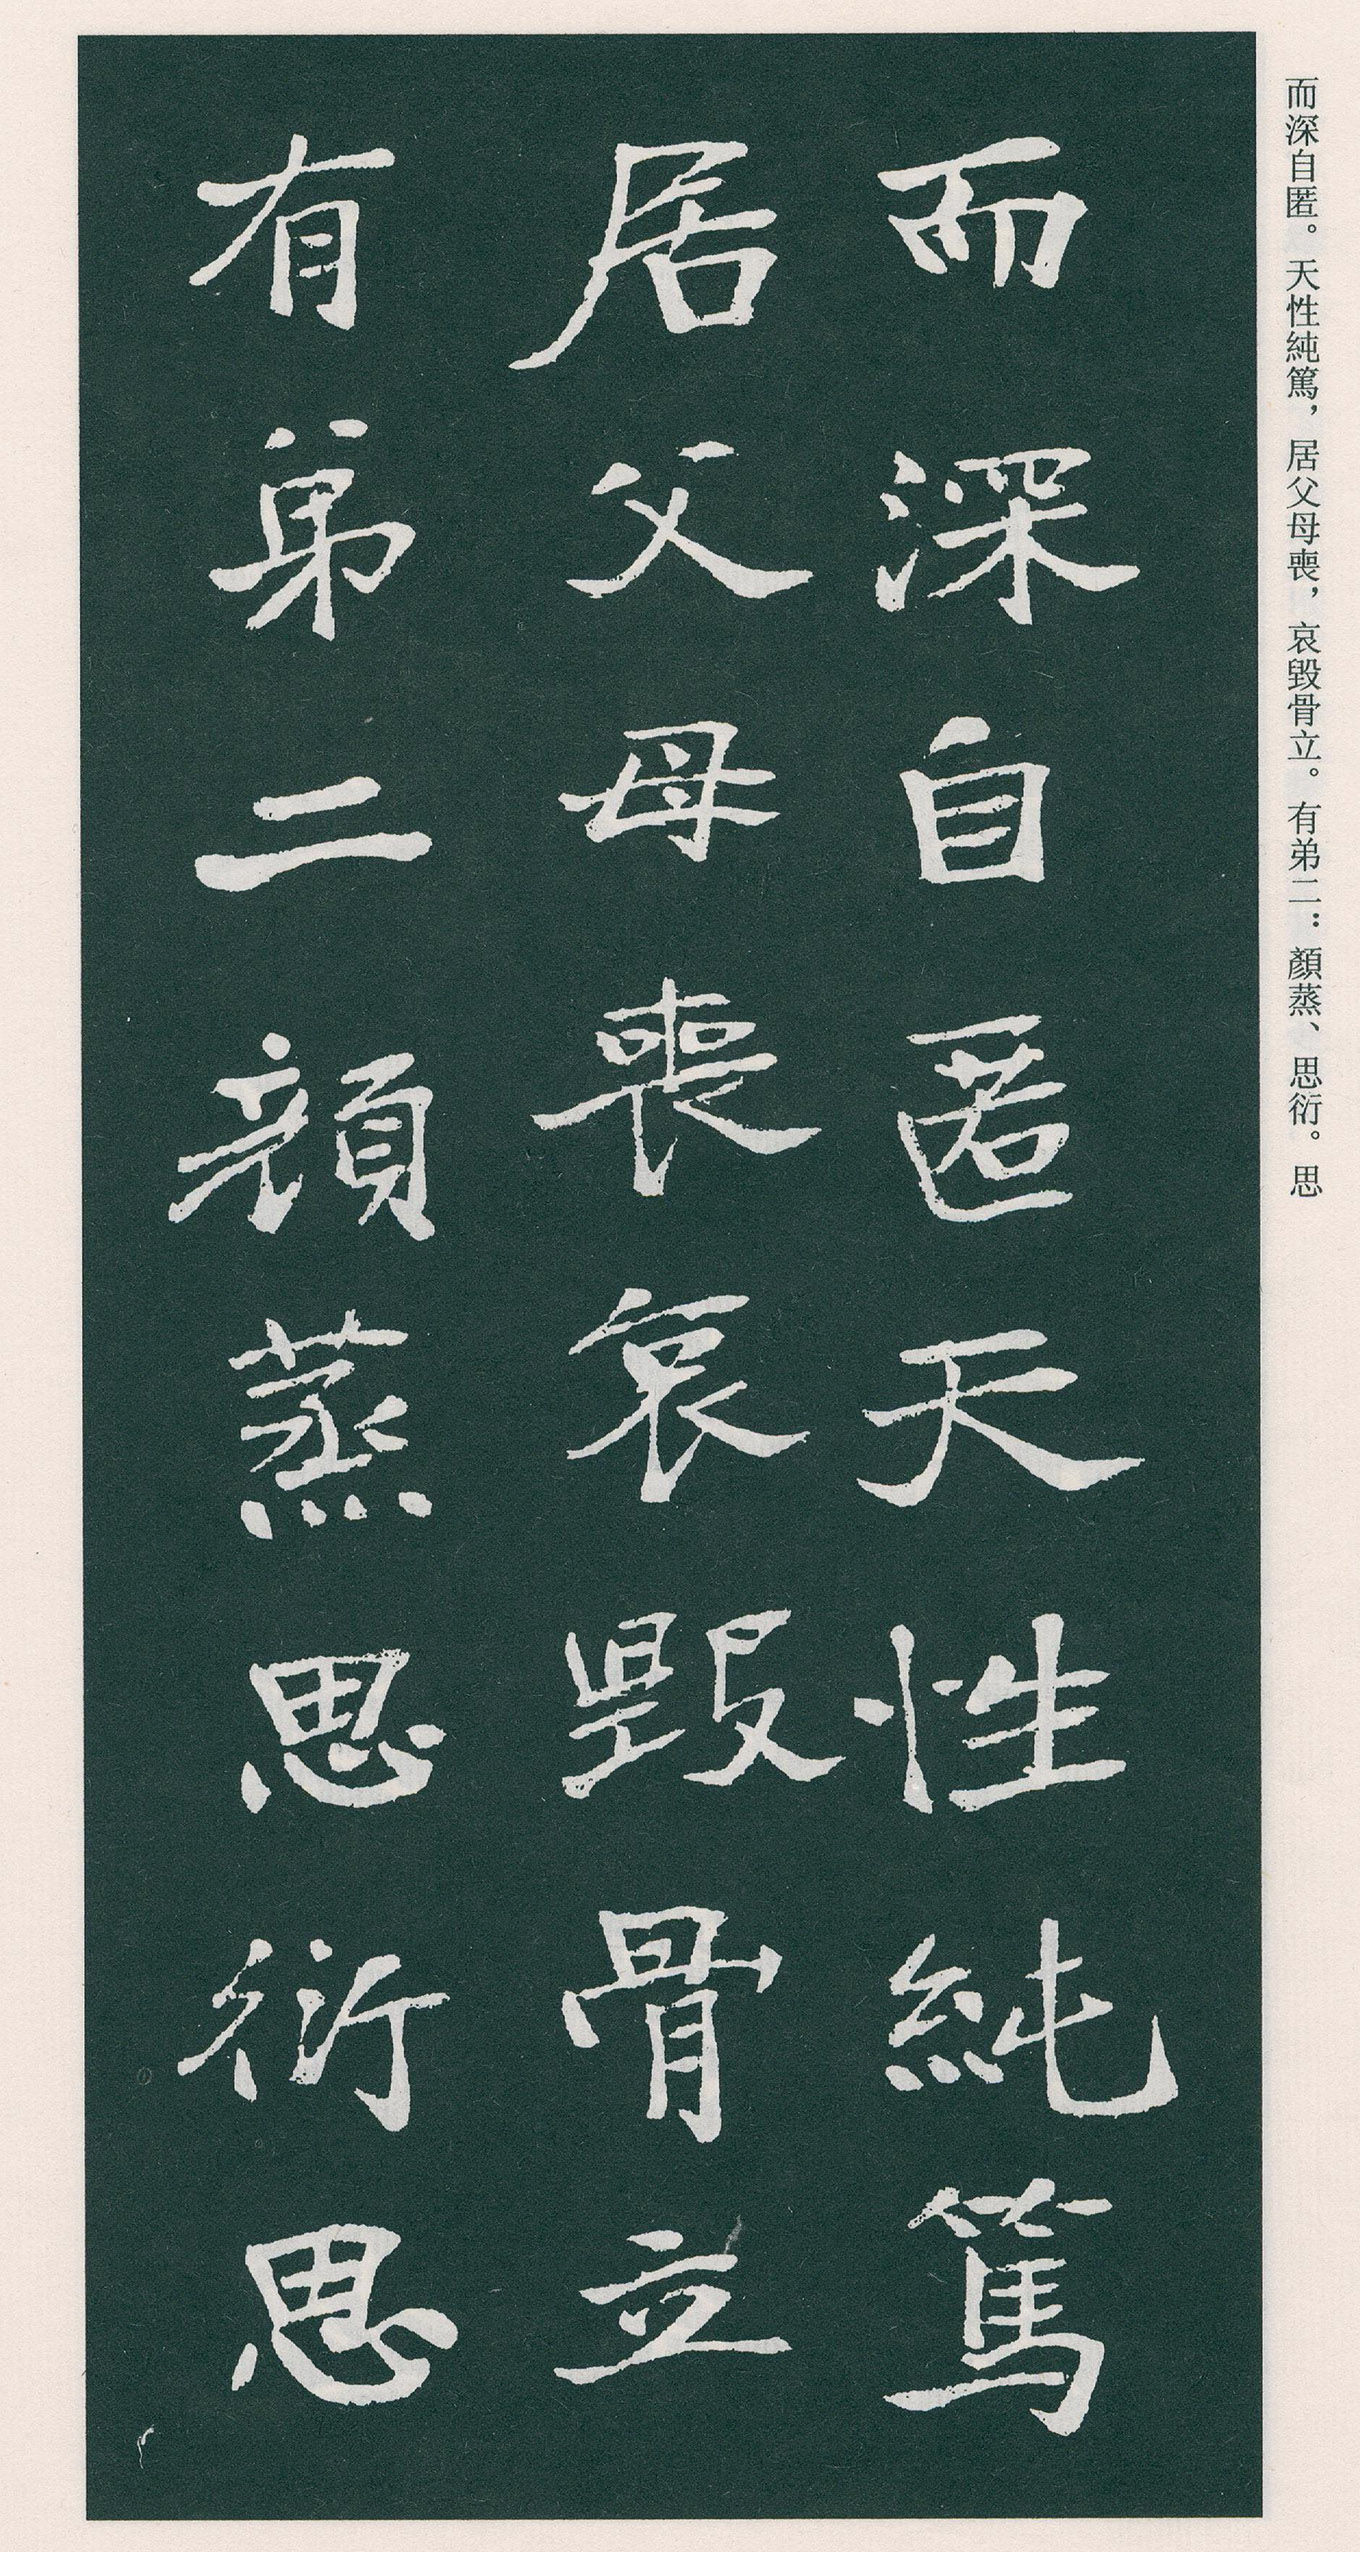 而深自匿。天性純篤，居父母喪，哀毀骨立。有弟二：顏蒸、思衍。思
而深自匿天性純篤
居父母喪哀毀骨立
有弟二顏蒸思衍思